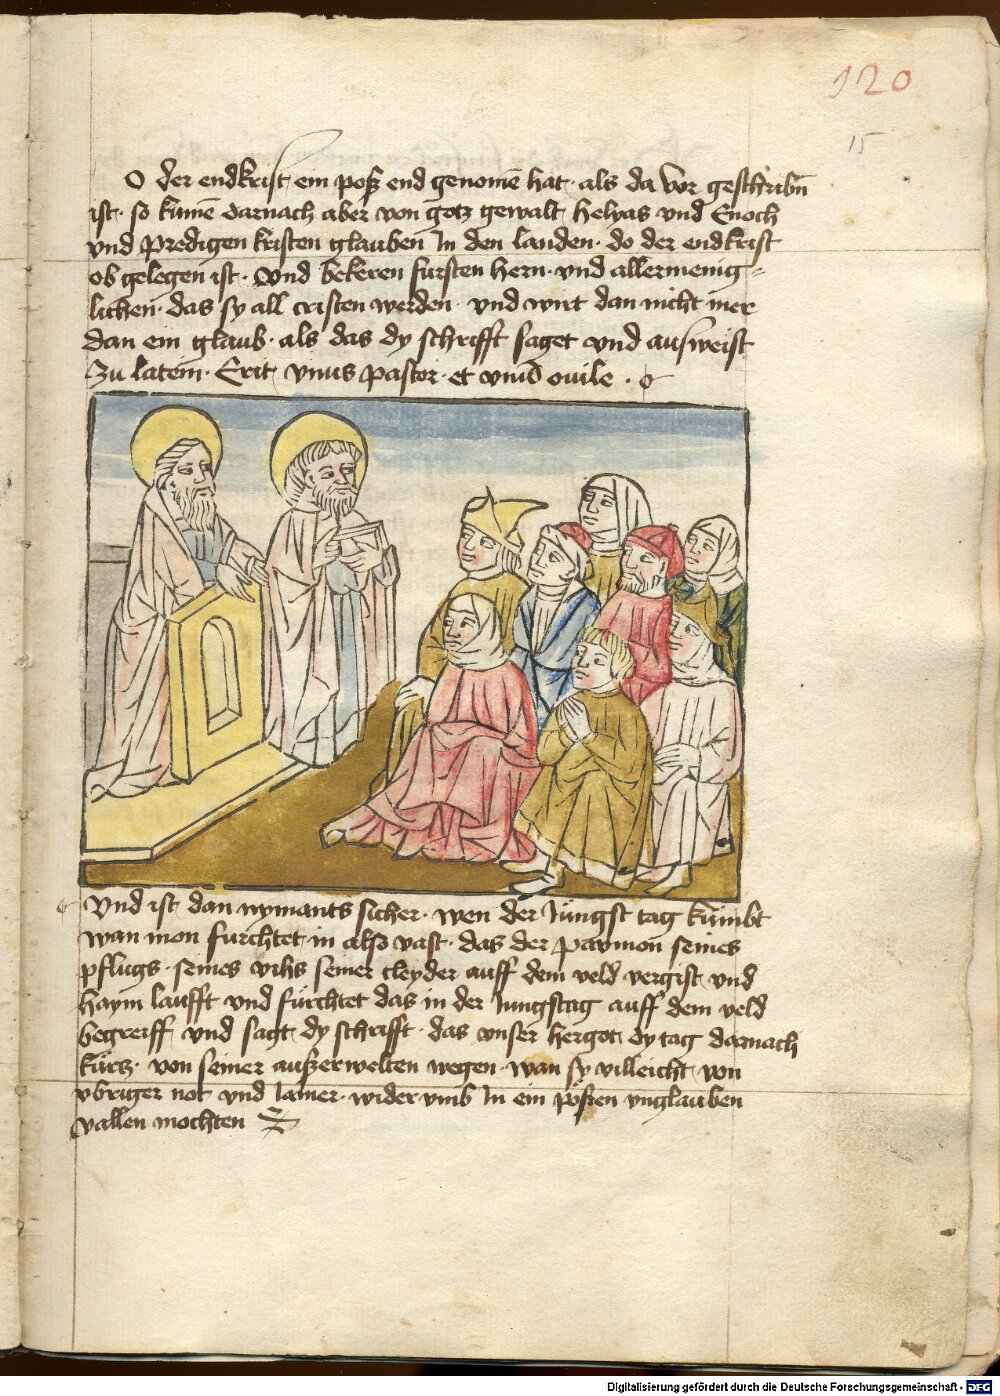 120
15
O der endkrist ein posz end genomē hat · als da vor geschribn̄
ist · so kumē darnach aber von gotz gewalt helyas vnd Enoch
vnd predigen kristen glauben In den landen · do der endkrist
ob gelegen ist · Vnd bekeren fursten hern · vnd allermenig=
lichen · das sy all cristen werden · vnd wirt dan nicht mer
dan ein glaub · als das dy schrifft saget vnd ausweist
Zu latein · Erit vnus pastor · et vnū ouile ·
Vnd ist dan nymants sicher · wen der Jungst tag kumbt
wan mon furchtet in also vast · das der pawmon seines
pflugs · seines vihs seiner cleyder auff dem veld vergist vnd
haym laufft vnd furchtet das in der Jungstag auff dem veld
begreiff vnd sagt dy schrifft · das vnser hergot dy tag darnach
kürtz · von seiner auszerwelten wegen · wan sy villeicht von
vbriger not vnd Jamer · wider vmb In ein pöszen vnglauben
vallen mochten
Digitalisierung gefördert durch die Deutsche Forschungsgemeinschaft - DFG